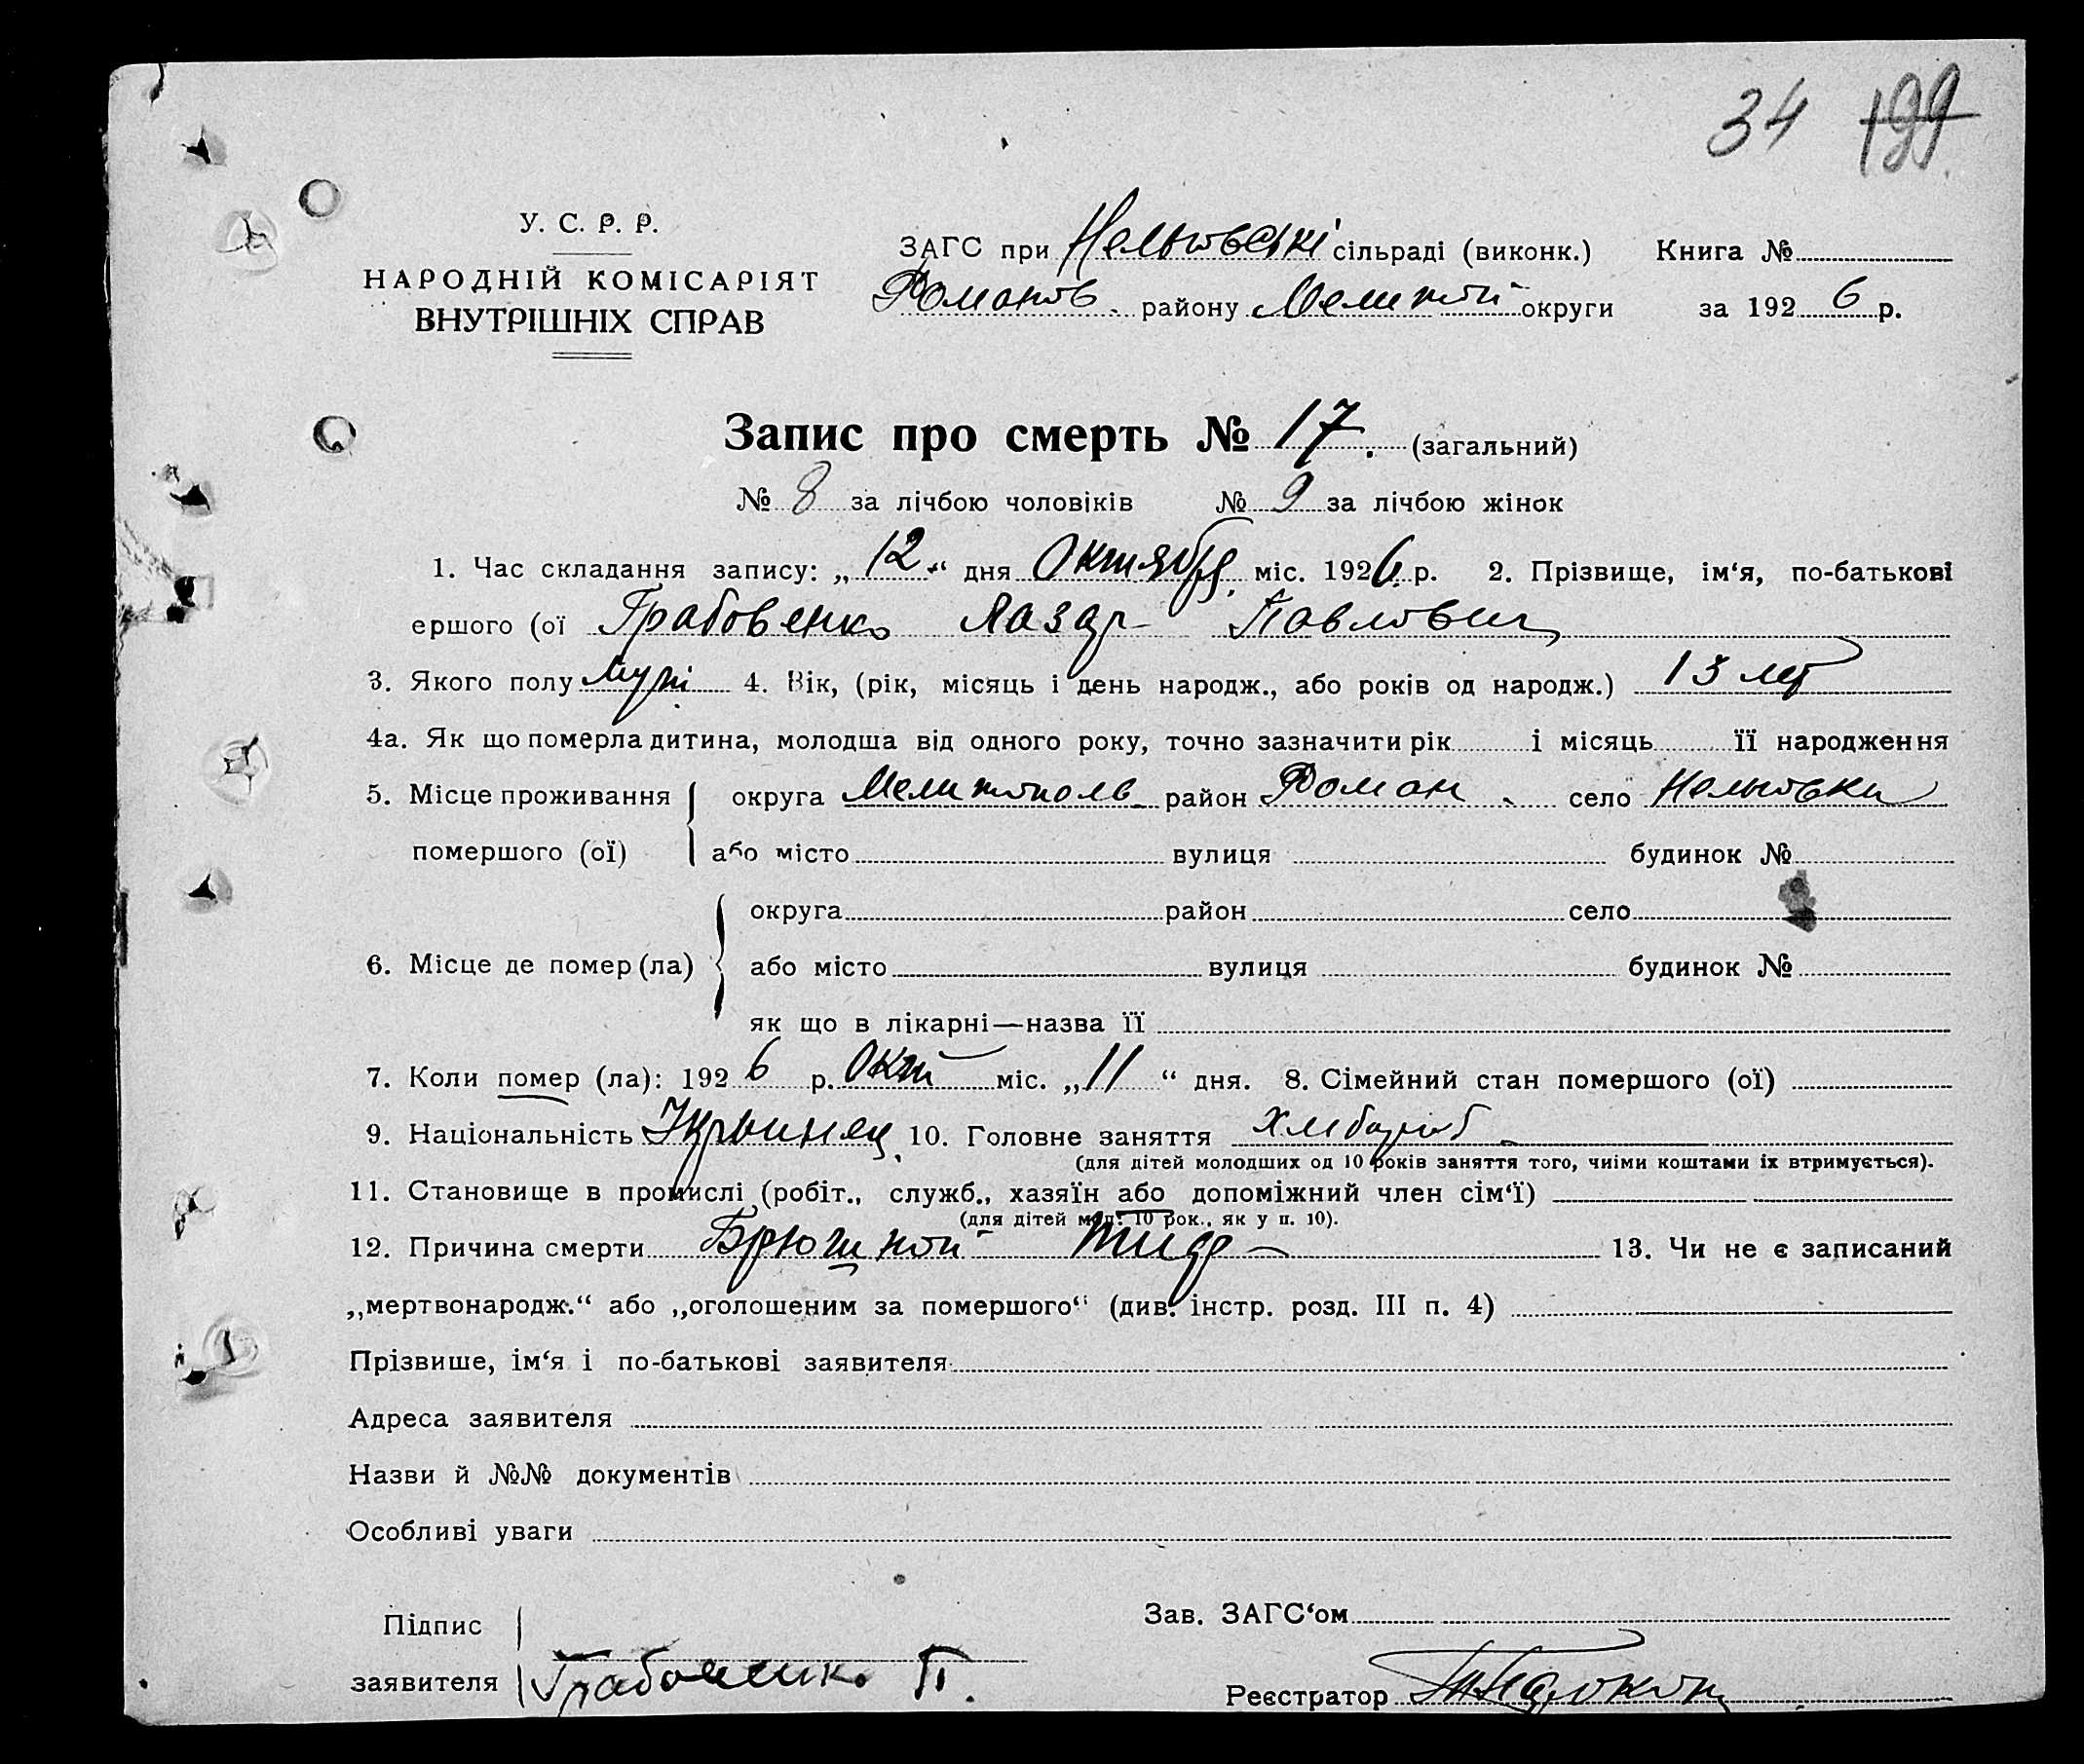 34 199
У. С. Р. Р.
НАРОДНІЙ КОМІСАРІЯТ
ВНУТРІШНІХ СПРАВ
ЗАГС при сільраді (виконк.) Книга №
Романов. району Мелитоп округи за 1926 р.
Запис про смерть № 17. (загальний)
№ 8 за лічбою чоловіків № 9 за лічбою жінок
1. Час складання запису: „12“ дня Октября міс. 1926 р. 2. Прізвище, ім‘я, по-батькові
ершого (ої Грабовенко Лазар Павлович
3. Якого полу Муж. 4. Вік, (рік, місяць і день народж., або років од народж.) 13 лет
4а. Як що померла дитина, молодша від одного року, точно зазначити рік і місяць її народження
5. Місце проживання округа Мелитополь район Роман. село
помершого (ої) або місто вулиця будинок №
округа район село
6. Місце де помер (ла) або місто вулиця будинок №
як що в лікарні—назва її
7. Коли помер (ла): 1926 р. Окт міс. „11“ дня. 8. Сімейний стан помершого (ої)
9. Національність 10. Головне заняття
(для дітей молодших од 10 років заняття того, чиїми коштами їх втримується).
11. Становище в промислі (робіт., служб., хазяїн або допоміжний член сім‘ї)
(для дітей мол. 10 рок., як у п. 10).
12. Причина смерти Брюшной Тиф 13. Чи не є записаний
„мертвонародж.“ або „оголошеним за помершого“ (див. інстр. розд. III п. 4)
Прізвише, ім‘я і по-батькові заявителя
Адреса заявителя
Назви й №№ документів
Особливі уваги
Підпис Зав. ЗАГС‘ом
заявителя Грабовенко П.
Реєстратор